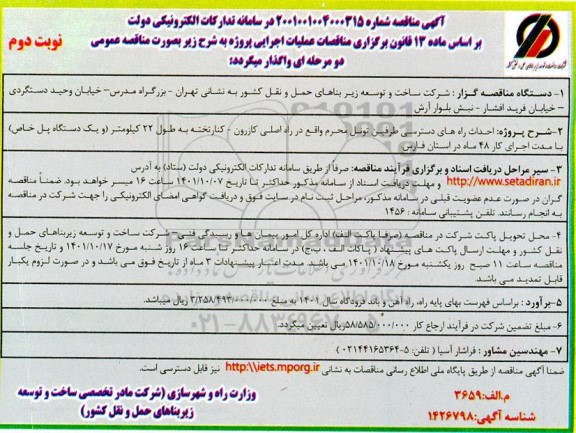 آگهی مناقصه شماره ۲۰۰۱۰۰۱۰۰۴۰۰۰۳۱۵ در سامانه تدارکات الکترونیکی دولت
بر اساس ماده ۱۳ قانون برگزاری مناقصات عملیات اجرایی پروژه به شرح زیر بصورت مناقصه عمومی
دو مرحله ای واگذار میگردد:
نوبت دوم
۱- دستگاه مناقصه گزار : شرکت ساخت و توسعه زیر بناهای حمل و نقل کشور به نشانی تهران - بزرگراه مدرس- خیابان وحید دستگردی
– خیابان فرید افشار - نبش بلوار آرش
۲-شرح پروژه: احداث راه های دسترسی طرفین تونل محرم واقع در راه اصلی کازرون - کنارتخته به طول ۲۲ کیلومتر (و یک دستگاه پل خاص)
با مدت اجرای کار ۴۸ ماه در استان فارس
۳- سیر مراحل دریافت اسناد و برگزاری فرآیند مناقصه: صرفا از طریق سامانه تدارکات الکترونیکی دولت (ستاد) به آدرس
http://www.setadiran.ir و مهلت دریافت اسناد از سامانه مذکور حداکثر تا تاریخ ۱۴۰۱/۱۰/۰۷ ساعت ۱۶ میسر خواهد بود. ضمناً مناقصه
گران در صورت عدم عضویت قبلی در سامانه مذکور، مراحل ثبت نام در سایت فوق و دریافت گواهی امضای الکترونیکی را جهت شرکت در مناقصه
به انجام رسانند. تلفن پشتیبانی سامانه : ۱۴۵۶
۴- محل تحویل پاکت شرکت در مناقصه (صرفا پاکت الف) اداره کل امور پیمان ها و رسیدگی فنی شرکت ساخت و توسعه زیربناهای حمل و
نقل کشور و مهلت ارسال پاکت های پیشنهاد (پاکات الف، ب، ج)، در سامانه حداکثر تا ساعت ۱۶ روز شنبه مورخ ۱۴۰۱/۱۰/۱۷ و تاریخ جلسه
مناقصه ساعت ۱۱ صبح روز یکشنبه مورخ ۱۴۰۱/۱۰/۱۸ می باشد. مدت اعتبار پیشنهادات ۳ ماه از تاریخ فوق می باشد و در صورت لزوم یکبار
قابل تمدید می باشد.
۵-برآورد : براساس فهرست بهای پایه راه، راه آهن و باند فرودگاه سال ۱۴۰۱ به مبلغ ۳/۲۵۸/۴۹۳/۰۰۰/۰۰۰ ریال میباشد.
۶-مبلغ تضمین شرکت در فرآیند ارجاع کار ۵۸/۵۸۵/۰۰۰/۰۰۰ ریال تعیین میگردد.
۷- مهندسین مشاور : فراشار آسیا ( تلفن: ۵-۰۲۱۴۴۱۶۵۳۶۴)
ضمنا آگهی مناقصه از طریق پایگاه ملی اطلاع رسانی مناقصات به نشانی http:\\iets.mporg.ir نیز قابل دسترسی است.
م.الف: ۳۶۵۹
شناسه آگهی: ۱۴۲۶۷۹۸
وزارت راه و شهرسازی (شرکت مادر تخصصی ساخت و توسعه
زیربناهای حمل و نقل کشور)